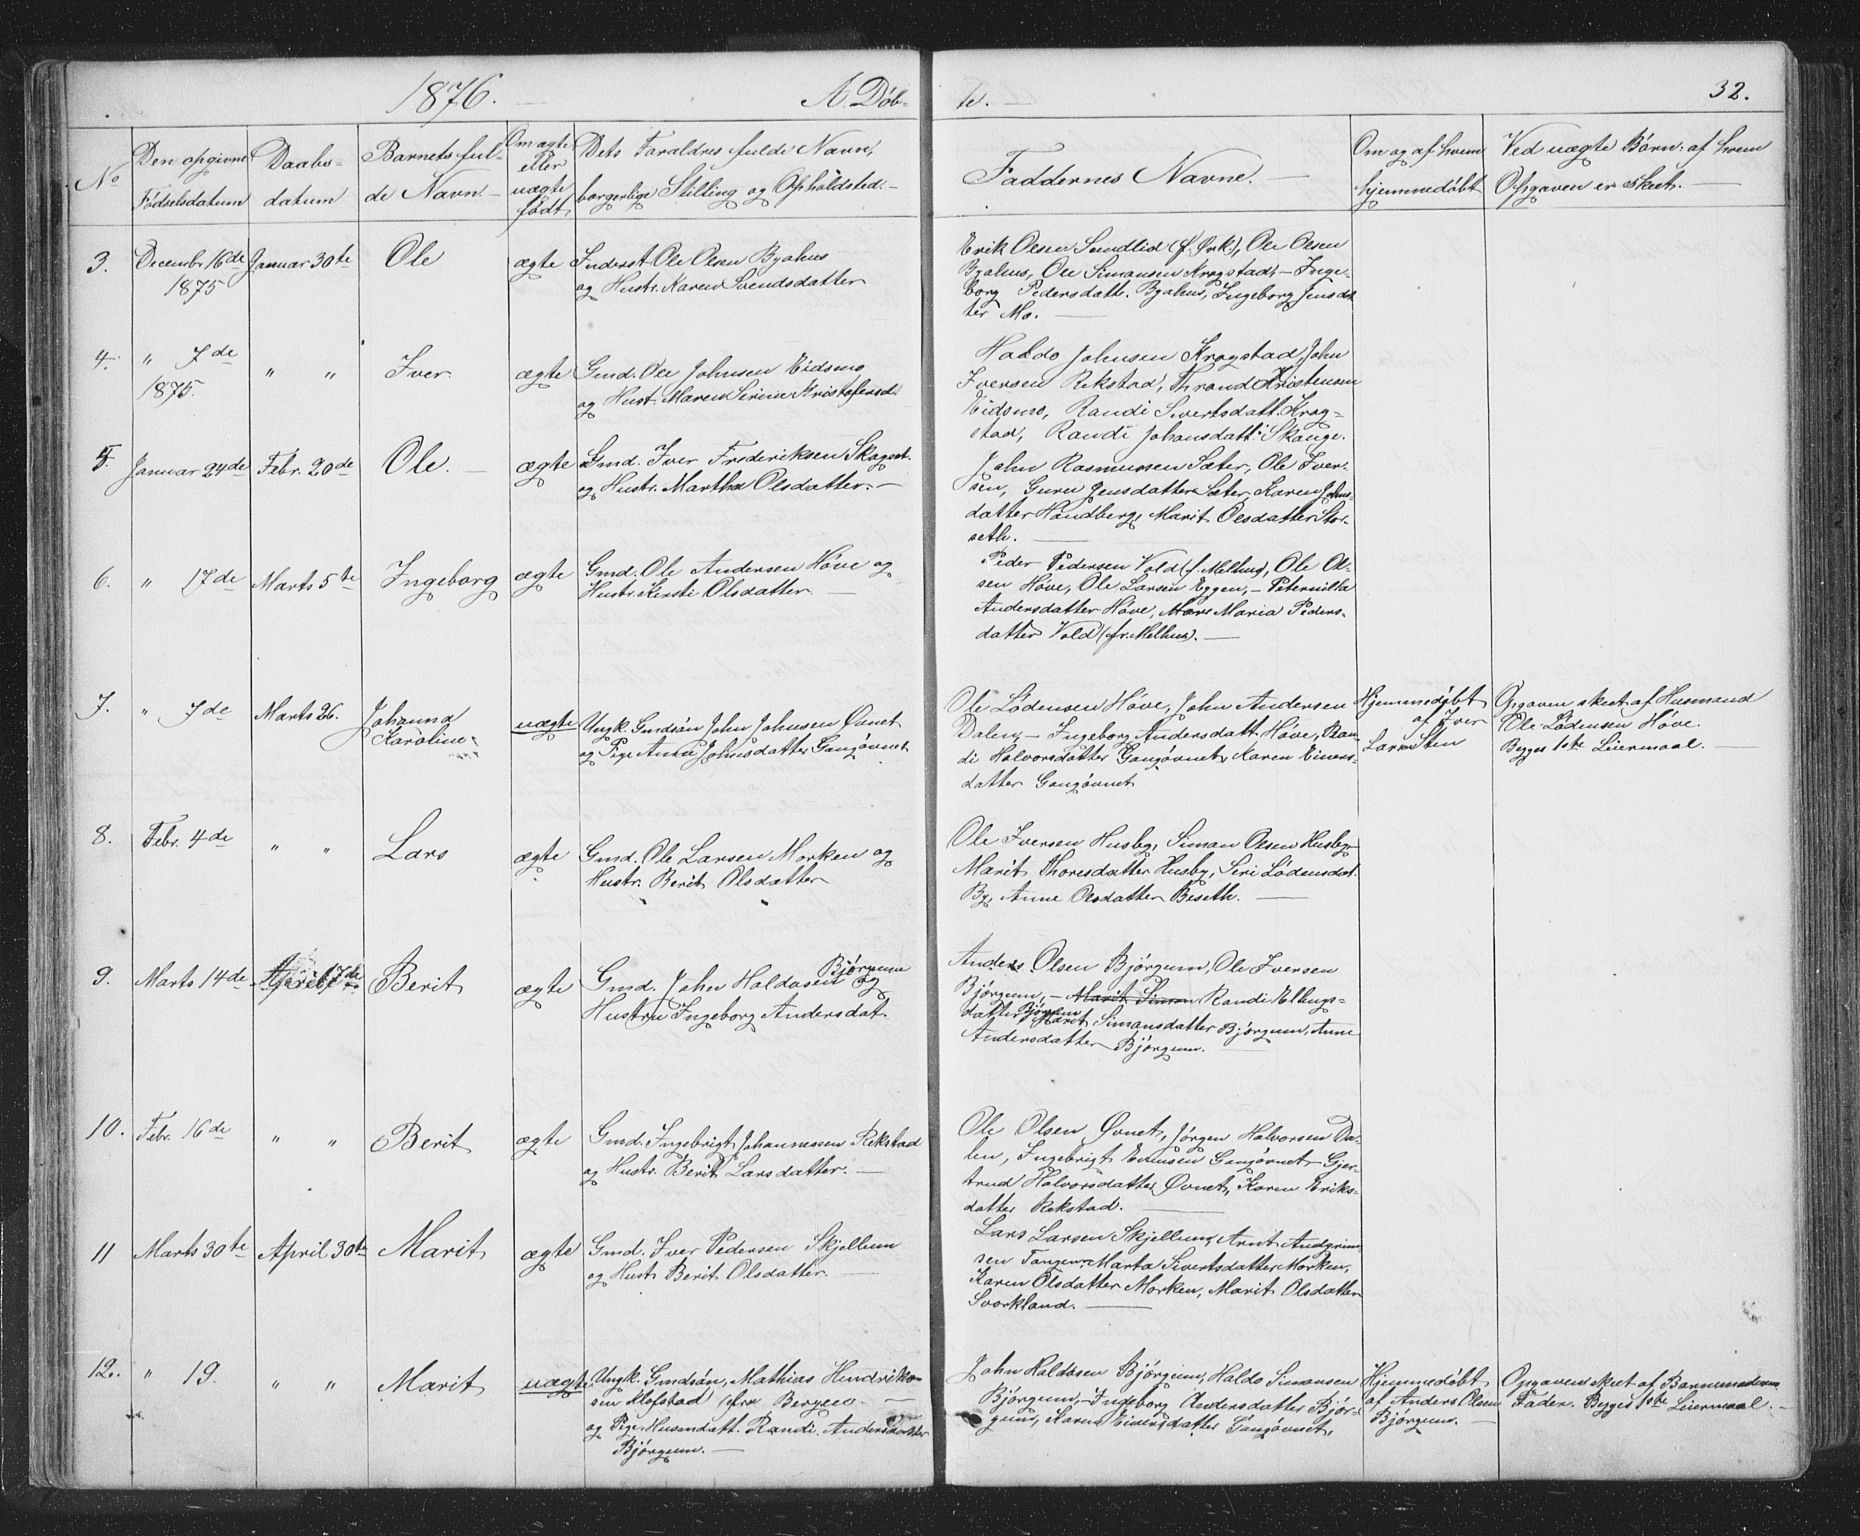 1876. A. Døb-
te. 32.
No
Den opgivne
Fødselsdatum
Daabs-
datum
Barnets ful-
de Navn.
Om ægte
eller
uægte
født.
Dets Forældres fulde Navn,
borgerlige Stilling og Opholdsted.
Faddernes Navne.
Om og af hvem
hjemmedøbt
Ved uægte Børn: af hvem
Opgaven er skeet.
3. Decembr. 16de Januar 30te Ole ægte Inderst Ole Olsen Byahus
1875 og Hustr. Karen Svendsdatter
Erik Olsen Sundlid (f. Ørk.), Ole Olsen
Byahus, Ole Simonsen Krogstad, Inge-
borg Pedersdatt. Byahus, Ingeborg Jensdat-
ter Mo.
4. " 7de " " Iver ægte Gmd. Ole Johnsen Eidsmo
1875. og Hust. Maren Serine Kristofersd.
Haldo Johnsen Krogstad, John
Iversen Rekstad, Thrond Kristensen
Eidsmo, Randi Sivertsdatt. Krog-
stad, Randi Johansdatt. Skauge.
5. Januar 24de Febr. 20de Ole. ægte Gmd. Iver Frederiksen
og Hustr. Martha Olsdatter.
John Rasmussen Sæter, Ole Iver-
sen, Guru Jensdatter Sæter, Karen Johns-
datter Handberg, Marit Olsdatter Stor-
seth.
6. " 17de Marts 5te Ingeborg ægte Gmd. Ole Andersen Høve og
Hustr. Kirsti Olsdatter.
Peder Pedersen Vold (f. Melhus), Ole Ol-
sen Høve, Ole Larsen Eggen, Peternilla
Andersdatter Høve, Maria Peders-
datter Vold (fr. Melhus).
7. " 7de Marts 26. Johanna uægte Ungk. Gmdsøn John Johnsen Øvnet
Karoline og Pige Anne Johnsdatter Gangøvnet.
Ole Lødensen Høve, John Andersen
Dalen, Ingeborg Andersdatt. Høve, Ran-
di Halvorsdatter Gangøvnet, Karen Einers-
datter Gangøvnet
Hjemmedøbt
af Iver
Larsen Sten
Opgaven skeet af Husmand
Ole Lødensen Høve.
Begges 1ste Leiermaal.
8. Febr. 4de " " Lars ægte Gmd. Ole Larsen Morken og
Hustr. Berit Olsdatter
Ole Iversen Husby, Simon Olsen Husby
Marit Thoresdatter Husby, Seri Lødensdat.
By, Anne Olsdatter Beseth.
9. Marts 14de April 17de Berit ægte Gmd. John Haldosen Bjørgum og
Hustru Ingeborg Andersdat.
Anders Olsen Bjørgum, Ole Iversen
Bjørgum, Marit Simon Randi Ellings-
datter Bjørgum Marit Simonsdatter Bjørgum, Anne
Andersdatter Bjørgum.
10. Febr. 16de " " Berit ægte Gmd. Ingebrigt Johannessen Rekstad
og Hustr. Berit Larsdatter.
Ole Olsen Øvnet, Jørgen Halvorsen Da-
len, Ingebrigt Einersen Gangøvnet, Gjer-
trud Halvorsdatter Øvnet, Karen Eriks-
datter Rekstad.
11 Marts 30te April 30te Marit ægte Gmd. Iver Pedersen Skjellum
og Hust. Berit Olsdatter.
Lars Larsen Skjellum, Arnt Andgrim-
sen Tangen, Marta Sivertsdatter Morken,
Karen Olsdatter Morken, Marit Olsdatter
Svorkland.
12. " 19. " " Marit uægte Ungk. Gmdsøn, Mathias Hendrik-
sen Klofstad (fra Bergen
og Pige Husmdatt. Randi Andersdatter
Bjørgum.
John Haldosen Bjørgum, Haldo Simonsen
Bjørgum, Ingeborg Andersdatter Bjør-
gum, Karen Einersdatter Gangøvnet,
Hjemmedøbt
af Anders Olsen
Bjørgum.
Opgaven skeet af Barnemoderens
Fader. Begges 1ste Leiermaal.